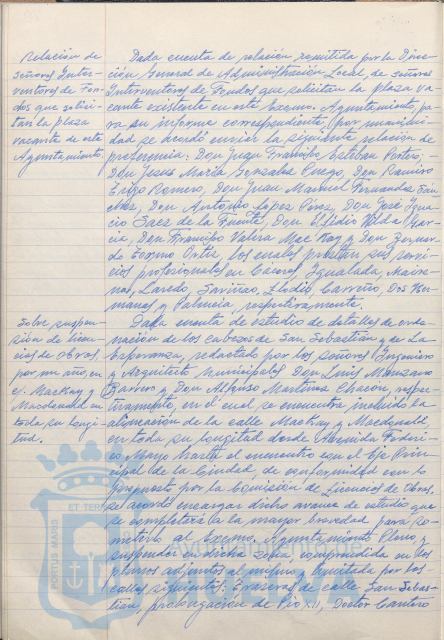 Relación de
Señores Inter-
ventores de Fon-
dos que solici-
tan la plaza
vacante de este
Ayuntamiento.
Dada cuenta de relación remitida por la Direc-
ción General de Administración Local, de señores
Interventores de Fondos que solicitan la plaza va-
cante existente en este Excmo. Ayuntamiento, pa-
ra su informe correspondiente, por unanimi-
dad se acordó enviar la siguiente relación de
preferencia: Don Juan Francisco Esteban
Don Jesus Maria Gonzalez Pueyo, Don Ramiro
Romero, Don Juan Manuel Fernandez Sán-
chez, Don Antonio Lopez Perez, Don José Igna-
cio Saez de la Fuente, Don Elfidio Vilda Gar-
cia, Don Francisco Valera Mac Kay y Don Bernar-
do Ortiz, los cuales prestan sus servi-
cios profesionales en Caceres, Igualada, Maire-
na, Laredo, Sariñena, Carreño, Dos Her-
manas y Palencia, respectivamente.
Sobre suspen-
sión de licen-
cias de Obras
por un año, en
c/. MacKay y
Macdonald en
toda su longi-
tud.
Dada cuenta de estudio de detalles de orde-
nación de los cabezos de San Sebastián y de La
Esperanza, redactado por los señores Ingeniero
y Arquitecto Municipales Don Luis Manzano
Barrero y Don Alfonso Martinez Chacón respec-
tivamente, en el cual se encuentra incluida la
alineación de la calle MacKay y Macdonald
en toda su longitud desde Avenida Federi-
co Mayo hasta el encuentro con el Eje Prin-
cipal de la Ciudad, de conformidad con lo
propuesto por la Comisión de Licencias de Obras,
se acordó encargar dicho avance de estudio que
se completará a la mayor brevedad para so-
meterlo al Excmo. Ayuntamiento Pleno, y
suspender en dicha zona, comprendida en los
planos adjuntos al mismo, limitada por las
calles siguientes: Traseras de calle San Sebas-
tián, prolongación de Pio XII, Doctor Cantero
ET TERRAE
PORTUS MARIS